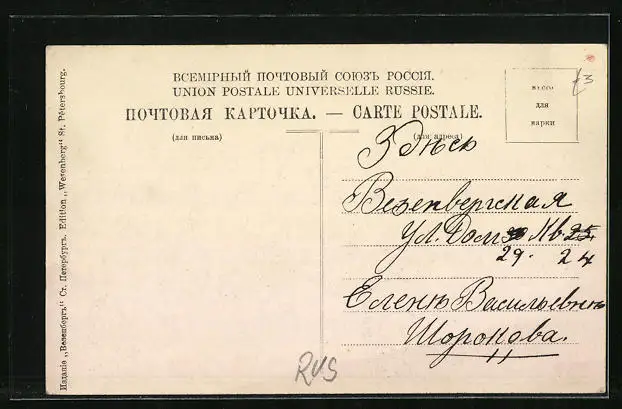 ВСЕМІРНЫЙ ПОЧТОВЫЙ СОЮЗЪ РОССІЯ.
UNION POSTALE UNIVERSELLE RUSSIE.
ПОЧТОВАЯ КАРТОЧКА. — CARTE POSTALE.
(для письма)
(для адреса)
мѣсто
для
марки
Здѣсь
Везенбергская
Ул. Дом 30 Кв 25
29. 24
Еленѣ Васильевнѣ
Шороновa.
RUS
Изданіе „Везенбергъ" Ст. Петербургъ. Edition „Wesenberg" St. Pétersbourg.